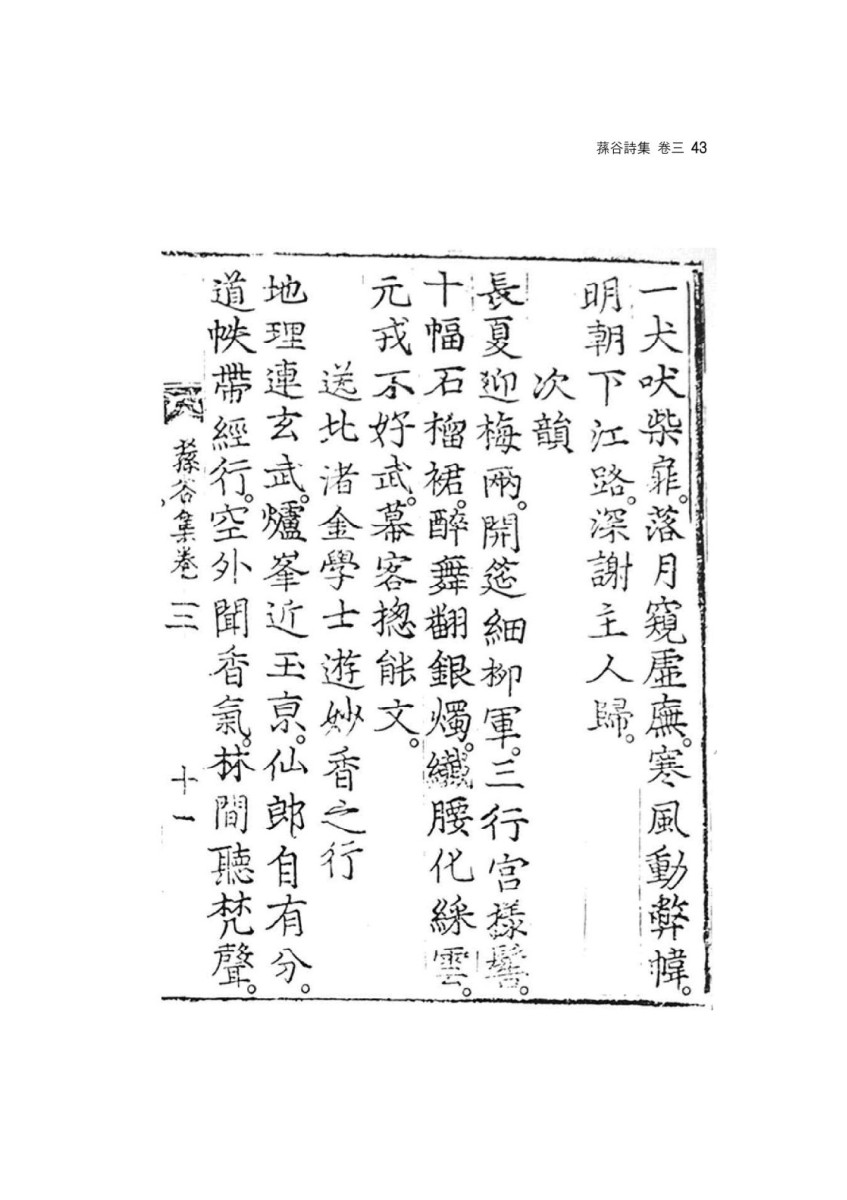 蓀谷詩集 卷三 43
一犬吠柴扉。落月窺虛廡。寒風動弊幃。
明朝下江路。深謝主人歸。
次韻
長夏迎梅雨。開筵細柳軍。三行宮樣髻。
十幅石榴裙。醉舞翻銀燭。纖腰化綵雲。
元戎不好武。幕客摠能文。
送北渚金學士遊妙香之行
地理連玄武。爐峯近玉京。仙郎自有分。
道帙帶經行。空外聞香氣。林間聽梵聲。
蓀谷集卷三 十一